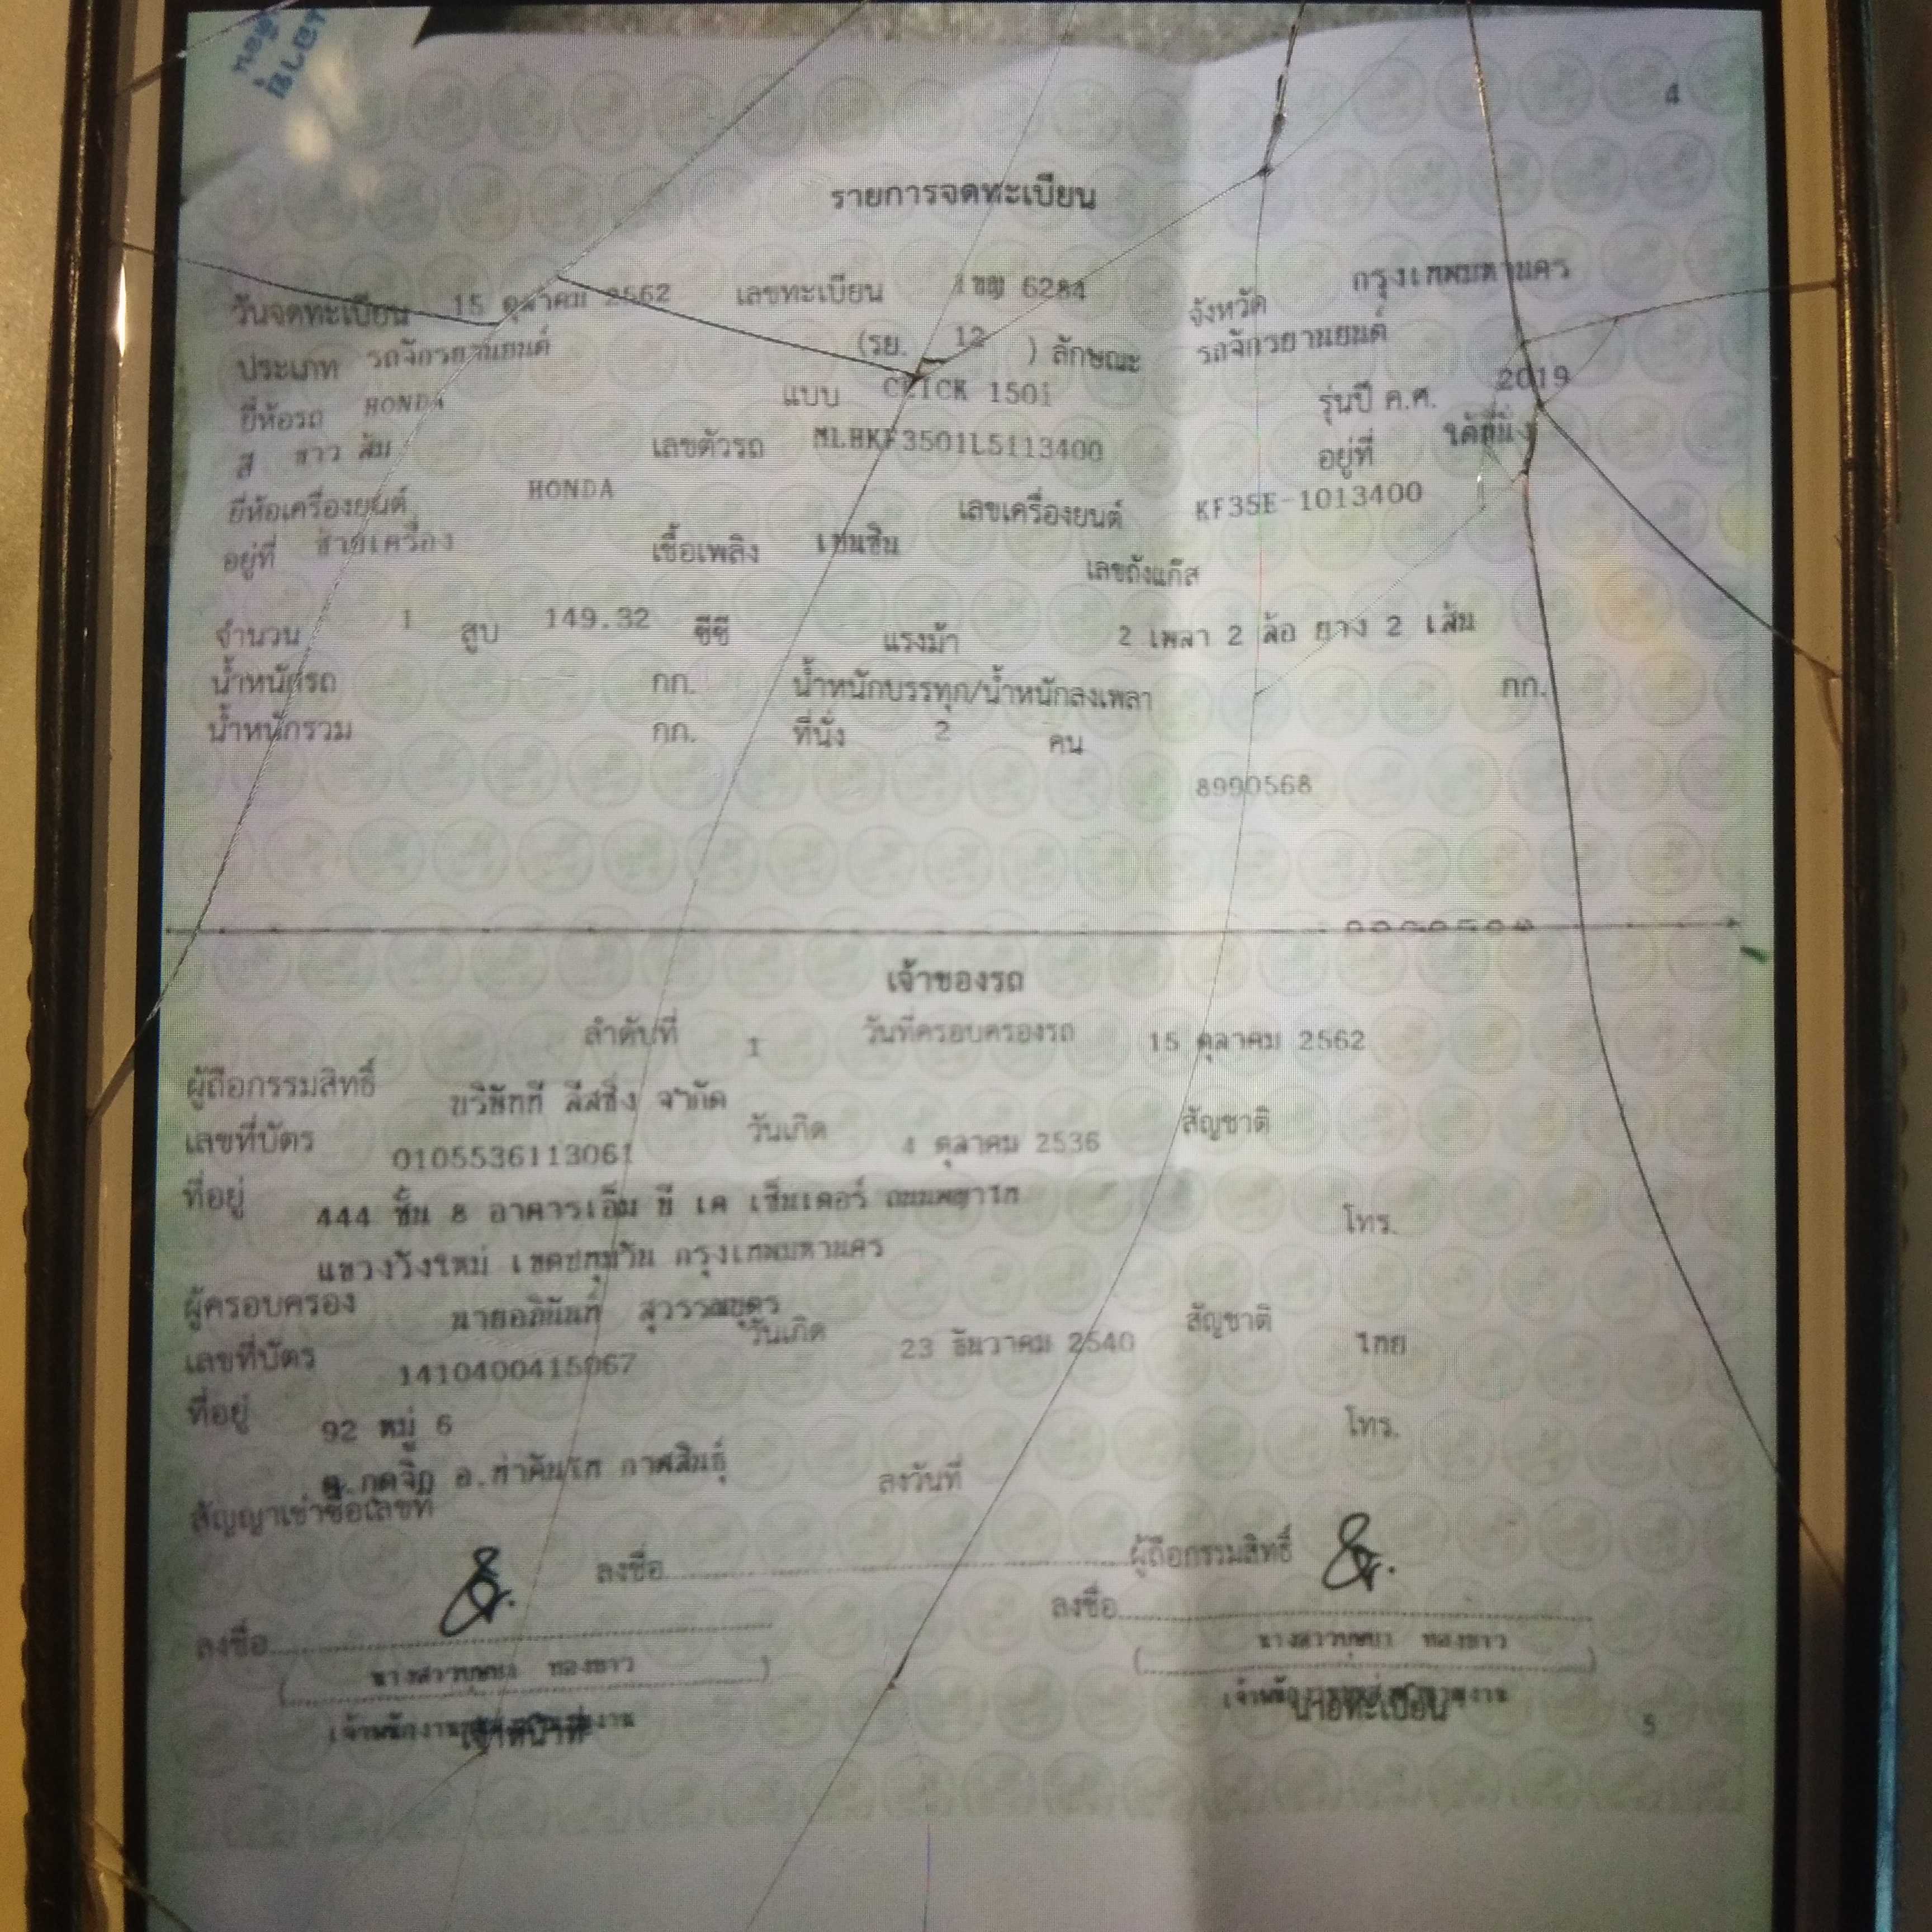 4
รายการจดทะเบียน
วันจดทะเบียน 15 ตุลาคม 2562 เลขทะเบียน 6284 จังหวัด กรุงเทพมหานคร
ประเภท รถจักรยานยนต์ (รย. 12 ) ลักษณะ รถจักรยานยนต์
ยี่ห้อรถ HONDA แบบ CLICK 150i รุ่นปี ค.ศ. 2019
สี ขาว ส้ม เลขตัวรถ MLHKF3501L5113400 อยู่ที่ ใต้ที่นั่ง
ยี่ห้อเครื่องยนต์ HONDA เลขเครื่องยนต์ KF35E-1013400
อยู่ที่ เชื้อเพลิง เบนซิน เลขถังแก๊ส
จำนวน 1 สูบ 149.32 ซีซี แรงม้า 2 เพลา 2 ล้อ ยาง 2 เส้น
น้ำหนักรถ กก. น้ำหนักบรรทุก/น้ำหนักลงเพลา กก.
น้ำหนักรวม กก. ที่นั่ง 2 คน
8990568
เจ้าของรถ
ลำดับที่ 1 วันที่ครอบครองรถ 15 ตุลาคม 2562
ผู้ถือกรรมสิทธิ์ ลีสซิ่ง จำกัด
เลขที่บัตร 0105536113061 วันเกิด 4 ตุลาคม 2536 สัญชาติ
ที่อยู่ 444 ชั้น 8 อาคารเอ็ม บี เค เซ็นเตอร์ ถนนพญาไท โทร.
แขวงวังใหม่ เขตปทุมวัน กรุงเทพมหานคร
ผู้ครอบครอง นายอภินันท์ สุวรรณบุตร
เลขที่บัตร 1410400415067 วันเกิด 23 ธันวาคม 2540 สัญชาติ ไทย
ที่อยู่ 92 หมู่ 6 โทร.
ต.กุดจิก อ.ท่าคันโท กาฬสินธุ์
สัญญาเช่าซื้อเลขที่ ลงวันที่
ลงชื่อ ผู้ถือกรรมสิทธิ์
ลงชื่อ ลงชื่อ
นางสาวบุศบา ทองขาว นางสาวบุศบา ทองขาว
เจ้าหน้าที่ นายทะเบียน
5